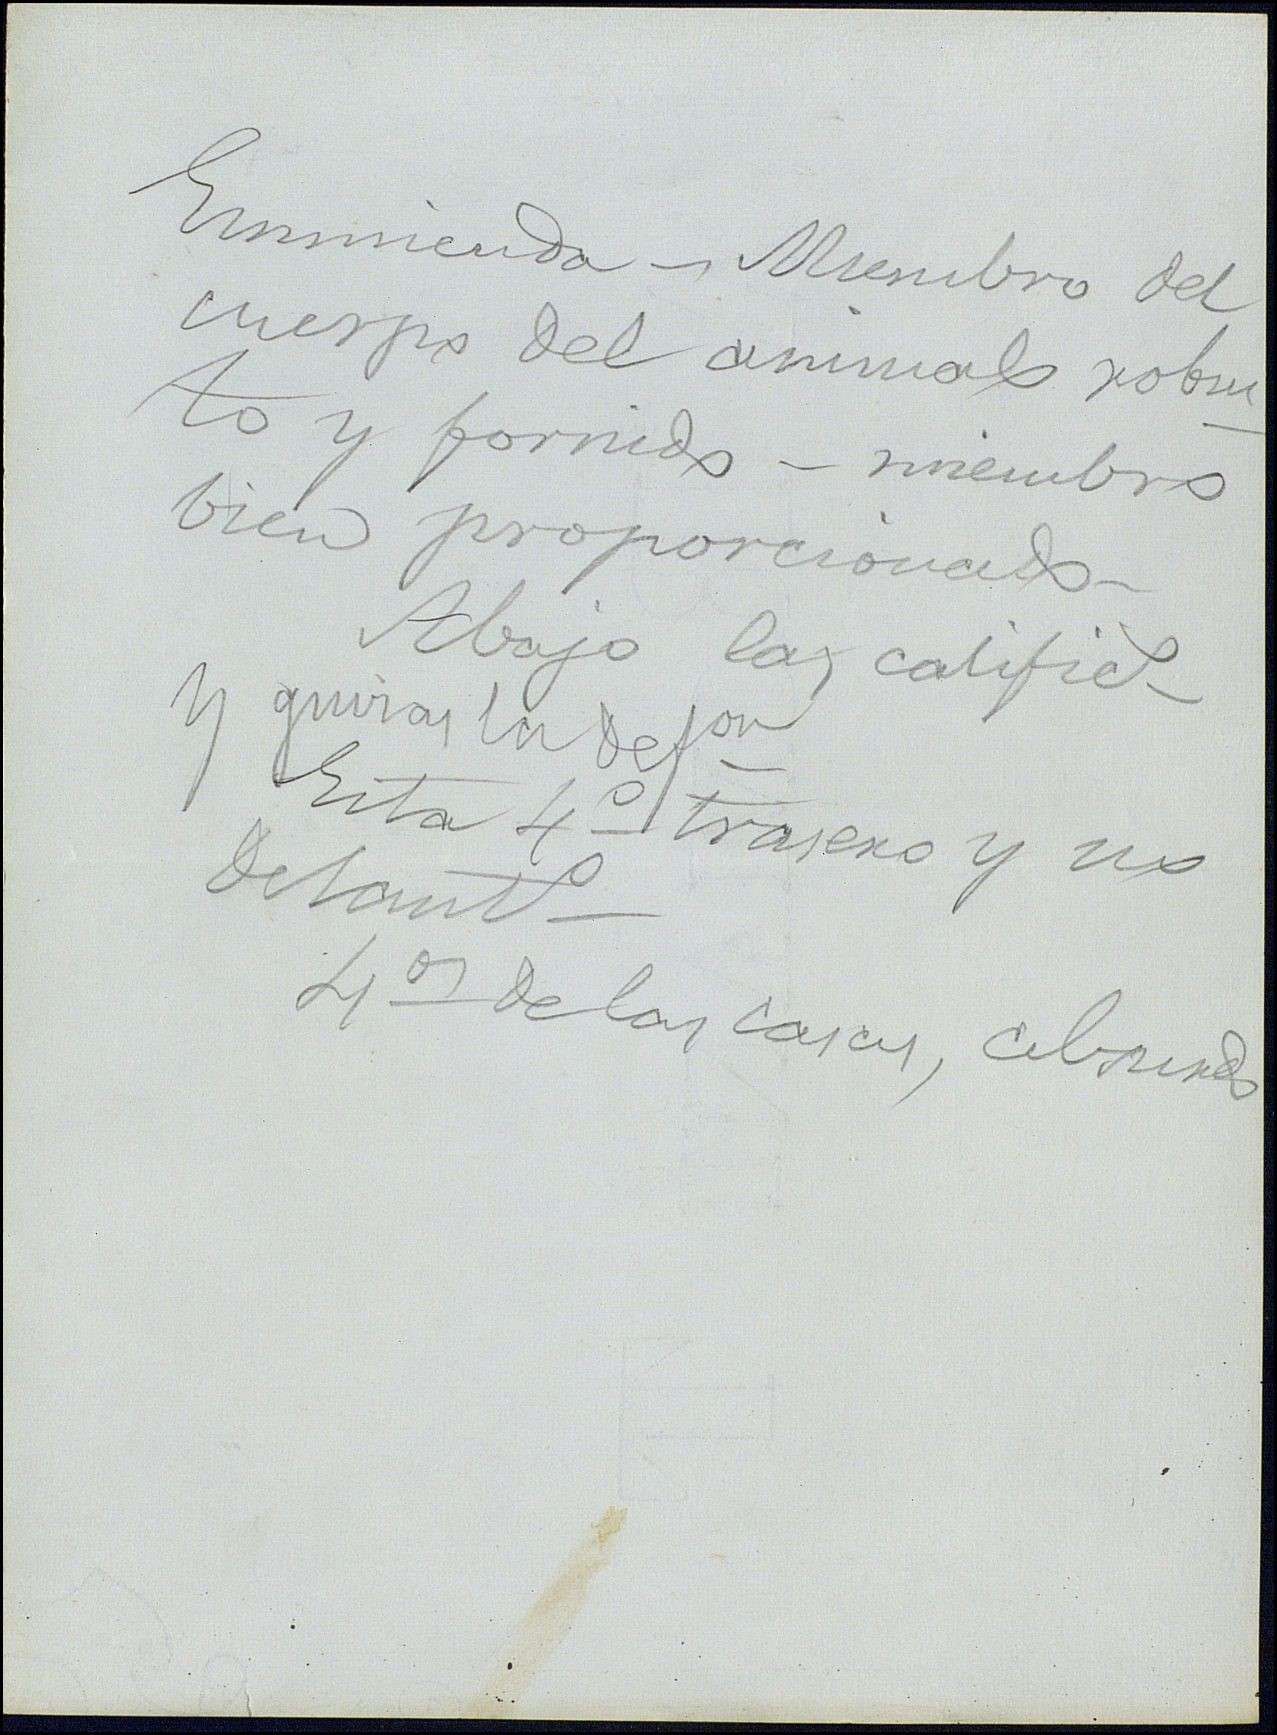 Enmienda – Miembro del
cuerpo del animal robus
to y fornido – miembro
bien proporcionado –
Abajo las calific
y quizas la defon
Esta 4º trasero y no
delant
4os de las casas, abriendo